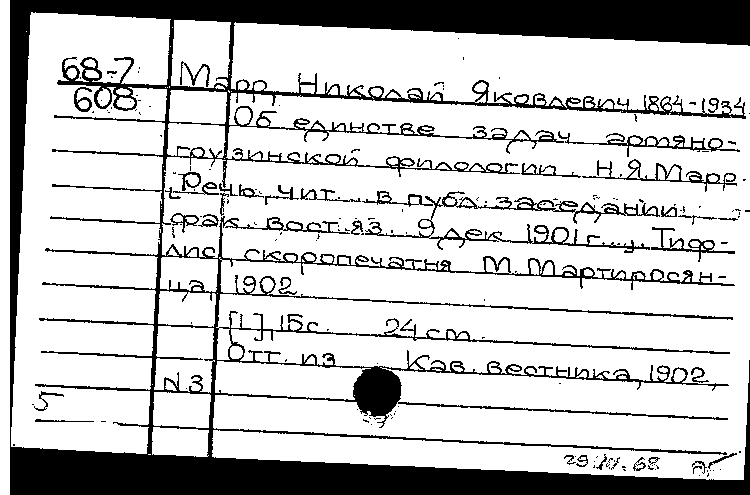 68-7 Марр, Николай Яковлевич, 1864-1934
608 Об единстве задач армяно-
грузинской филологии. Н.Я. Марр.
„Речь, чит. в публ. заседании
фак. вост. яз. 9 дек 1901 г...„ Тиф-
лис, скоропечатня М. Мартиросян-
ца, 1902
[1], 15 с. 24 cm.
Отт. из Кав. вестника, 1902,
N 3
5
68